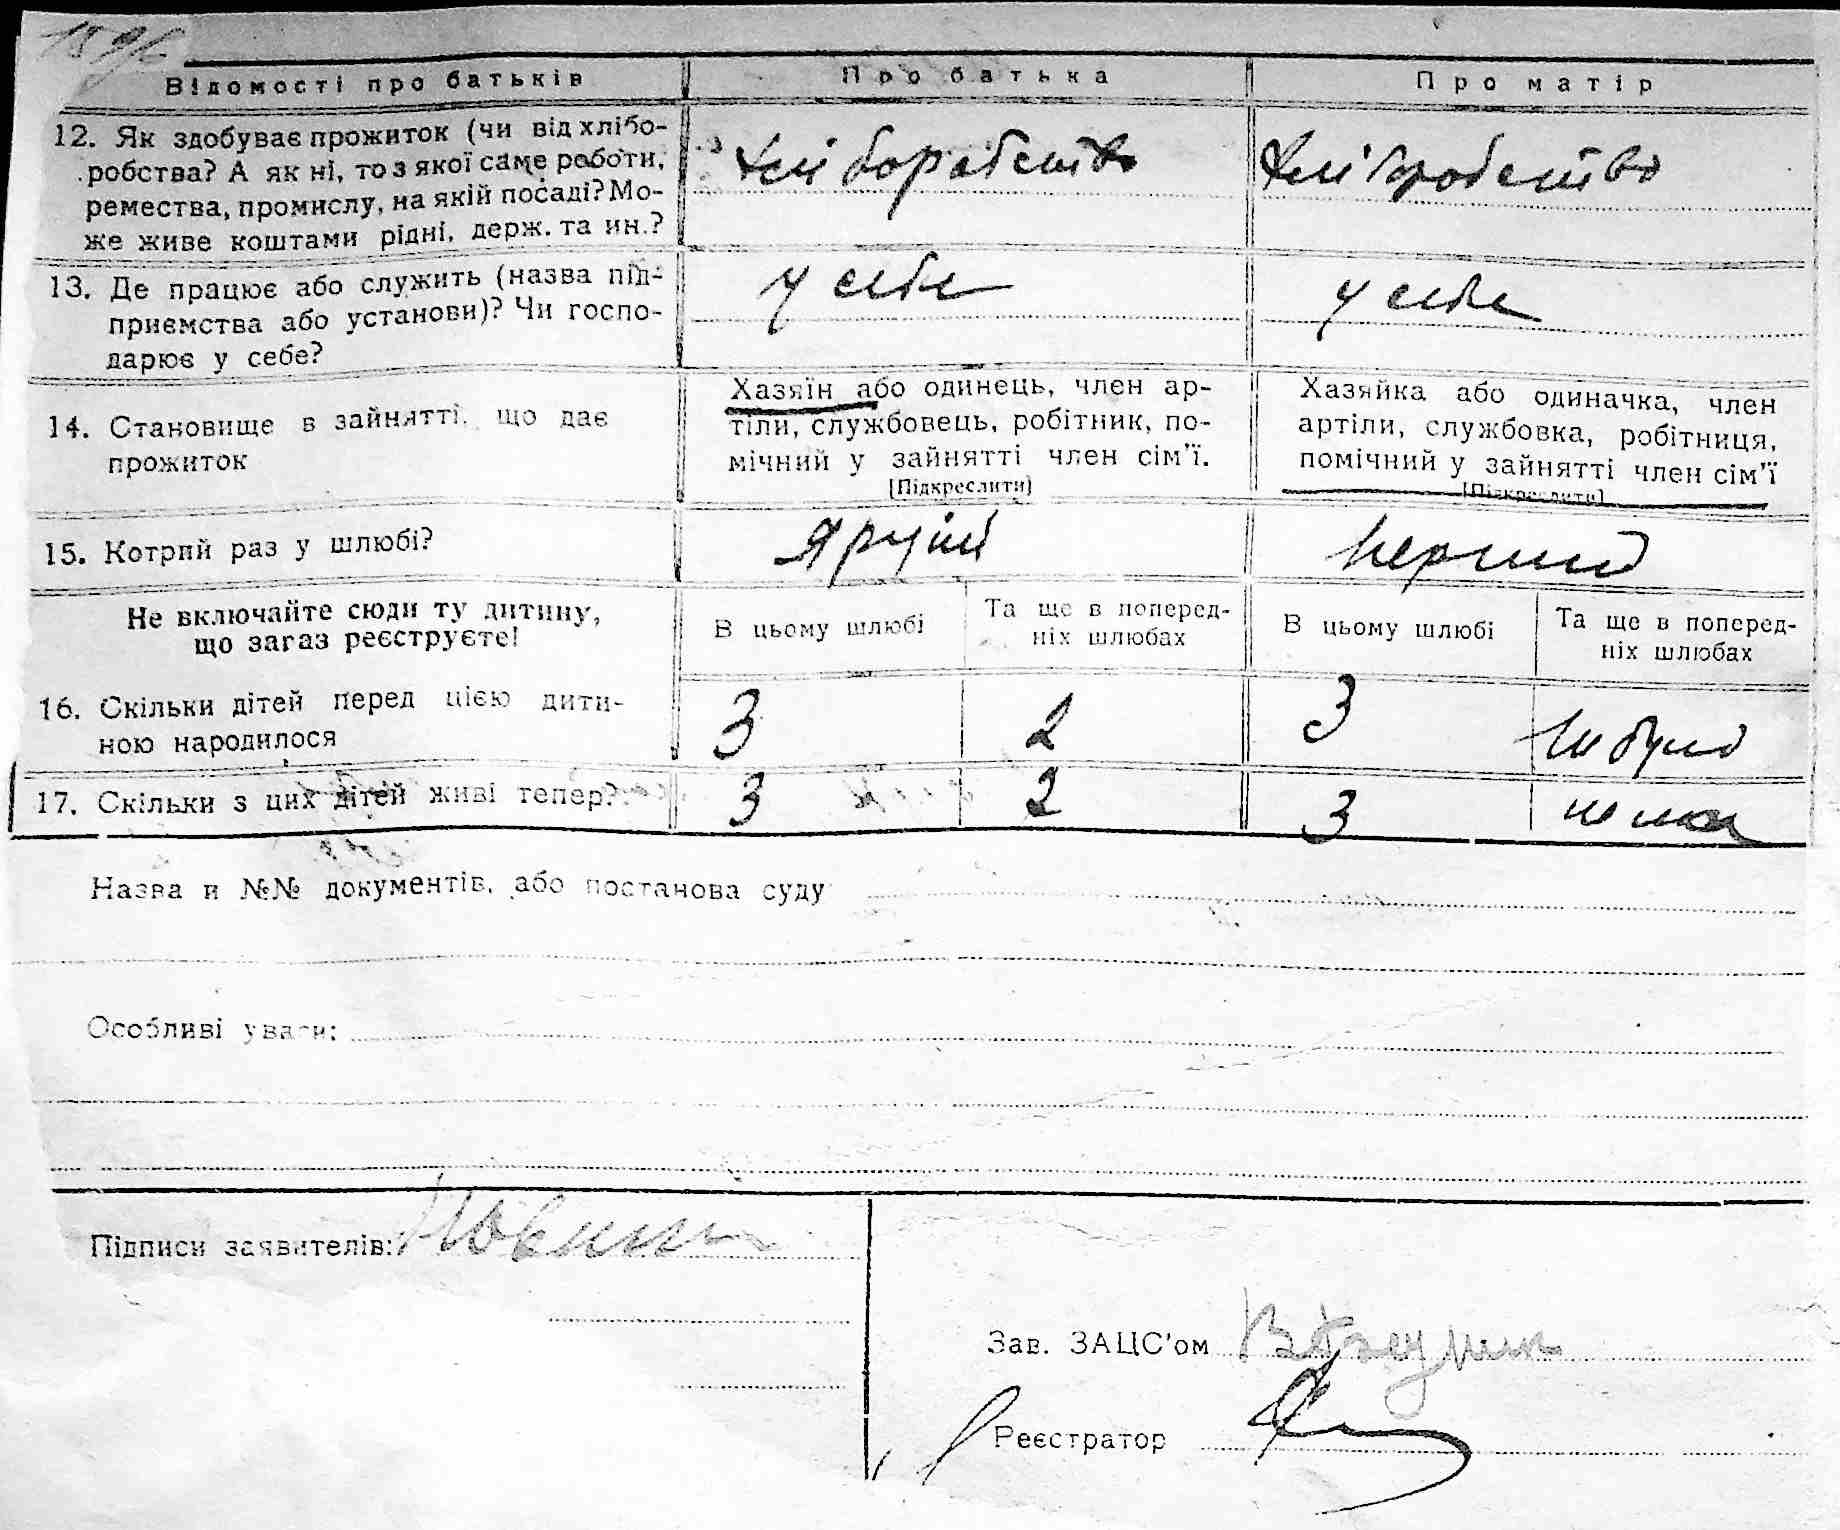 159/с
Відомості про батьків
Про батька
Про матір
12. Як здобуває прожиток (чи від хлібо-
робства? А як ні, то з якої саме роботи,
ремества, промислу, на якій посаді? Мо-
же живе коштами рідні, держ. та ин.?
хліборобство
хліборобство
13. Де працює або служить (назва під-
приємства або установи)? Чи госпо-
дарює у себе?
у себе
у себе
14. Становище в зайнятті, що дає
прожиток
Хазяїн або одинець, член ар-
тіли, службовець, робітник, по-
мічний у зайнятті член сім'ї.
[Підкреслити]
Хазяйка або одиначка, член
артіли, службовка, робітниця,
помічний у зайнятті член сім'ї
[Підкреслити]
15. Котрий раз у шлюбі?
другий
перший
Не включайте сюди ту дитину,
що загаз реєструєте!
В цьому шлюбі
Та ще в поперед-
ніх шлюбах
В цьому шлюбі
Та ще в поперед-
ніх шлюбах
16. Скільки дітей перед цією дити-
ною народилося
3
2
3
не було
17. Скільки з цих дітей живі тепер?
3
2
3
нема
Назва и №№ документів, або постанова суду
Особливі уваги:
Підписи заявителів:
Зав. ЗАЦС'ом
Реєстратор